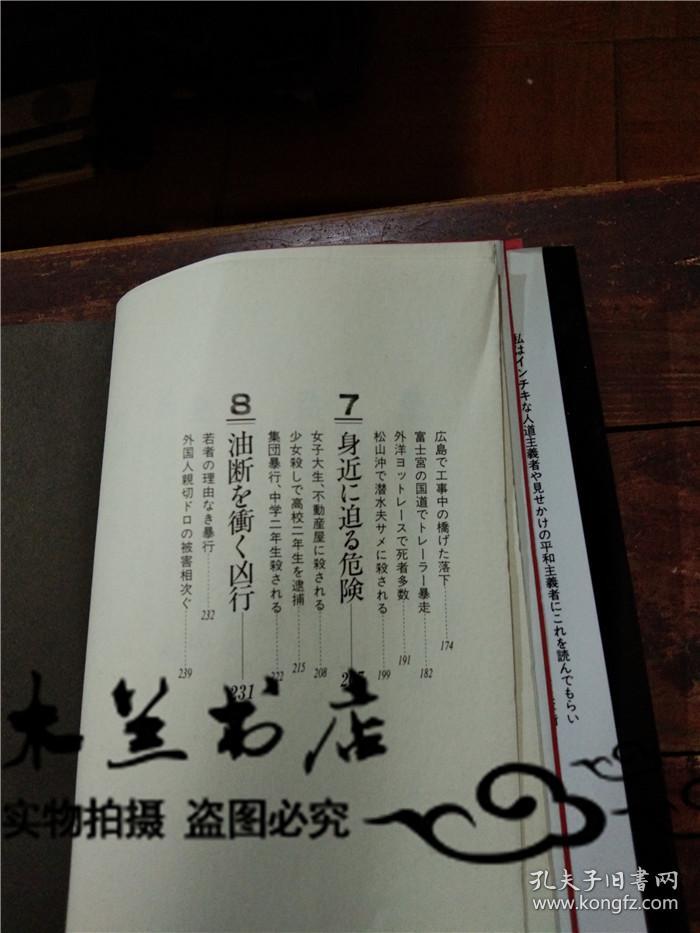 広島で工事中の橋げた落下……174
富士宮の国道でトレーラー暴走……182
外洋ヨットレースで死者多数……191
松山沖で潜水夫サメに殺される……199
7 身近に迫る危険
女子大生、不動産屋に殺される……208
少女殺しで高校二年生を逮捕……215
集団暴行、中学二年生殺される……222
8 油断を衝く凶行——231
若者の理由なき暴行……232
外国人親切ドロの被害相次ぐ……239
私はインチキな人道主義者や見せかけの平和主義者にこれを読んでもらい
木兰书店
实物拍摄 盗图必究
孔夫子旧书网
www.kongfz.com